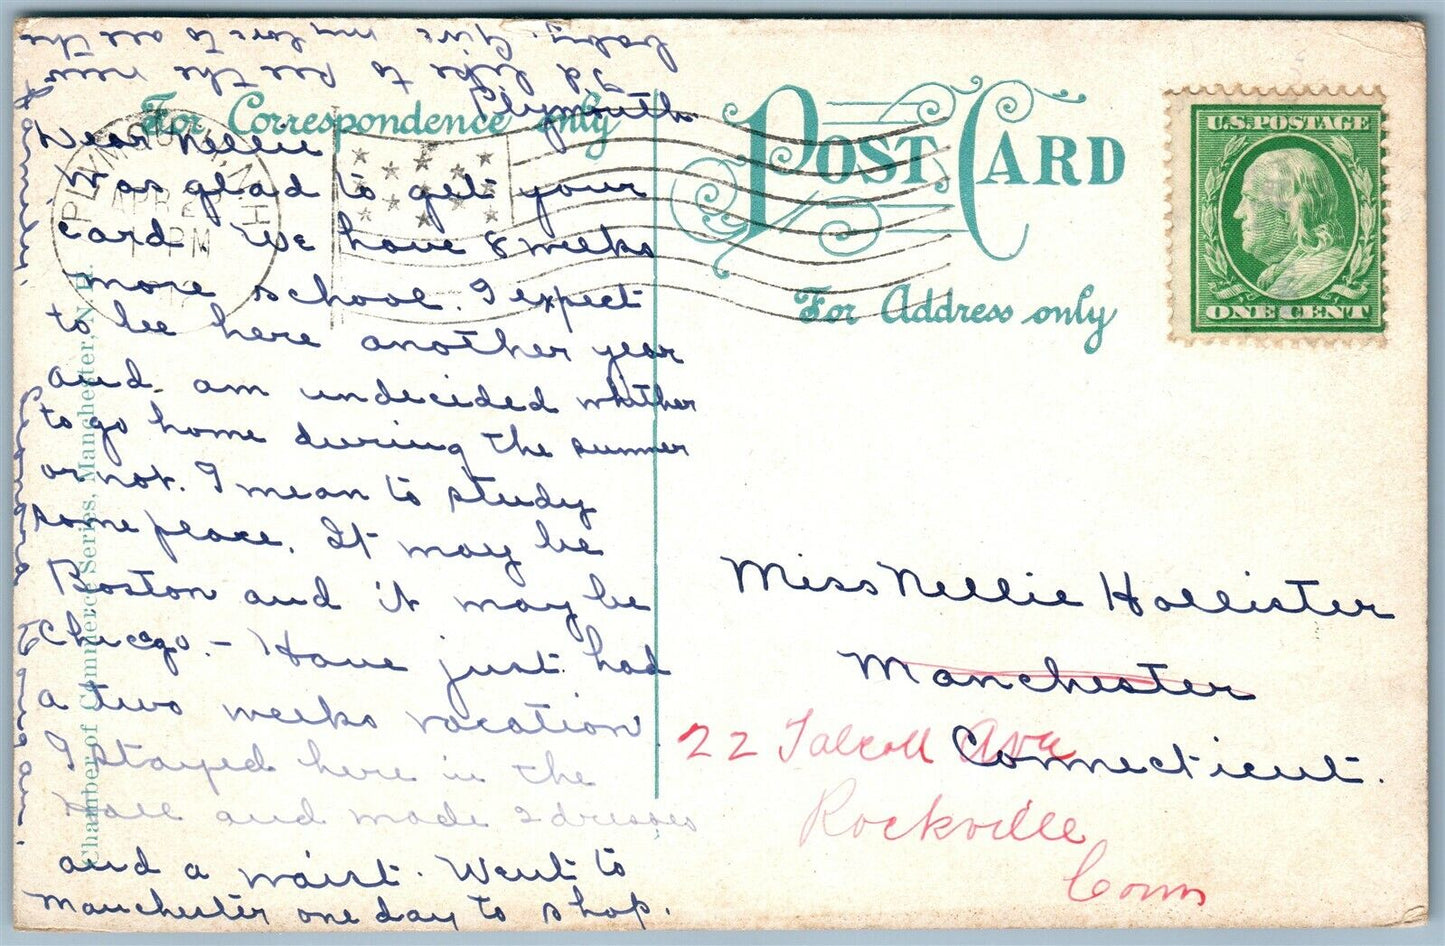 For Correspondence only
POST CARD
For Address only
U.S. POSTAGE
ONE CENT
PLYMOUTH, N.H.
APR 2
PM
Chamber of Commerce Series, Manchester, N.H.
Plymouth
Dear Nellie
Was glad to get your
card. We have 8 weeks
more school. I expect
to be here another year
and am undecided whither
to go home during the summer
or not. I mean to study
some place. It may be
Boston and it may be
Chicago. - Have just had
a two weeks vacation.
I stayed here in the
Hall and made 2 dresses
and a waist. Went to
Manchester one day to shop.
I'd like to see the new
baby. Give my love to all the
family.
Miss Nellie Hollister
Manchester
Connecticut.
22 Talcott Ave
Rockville
Conn